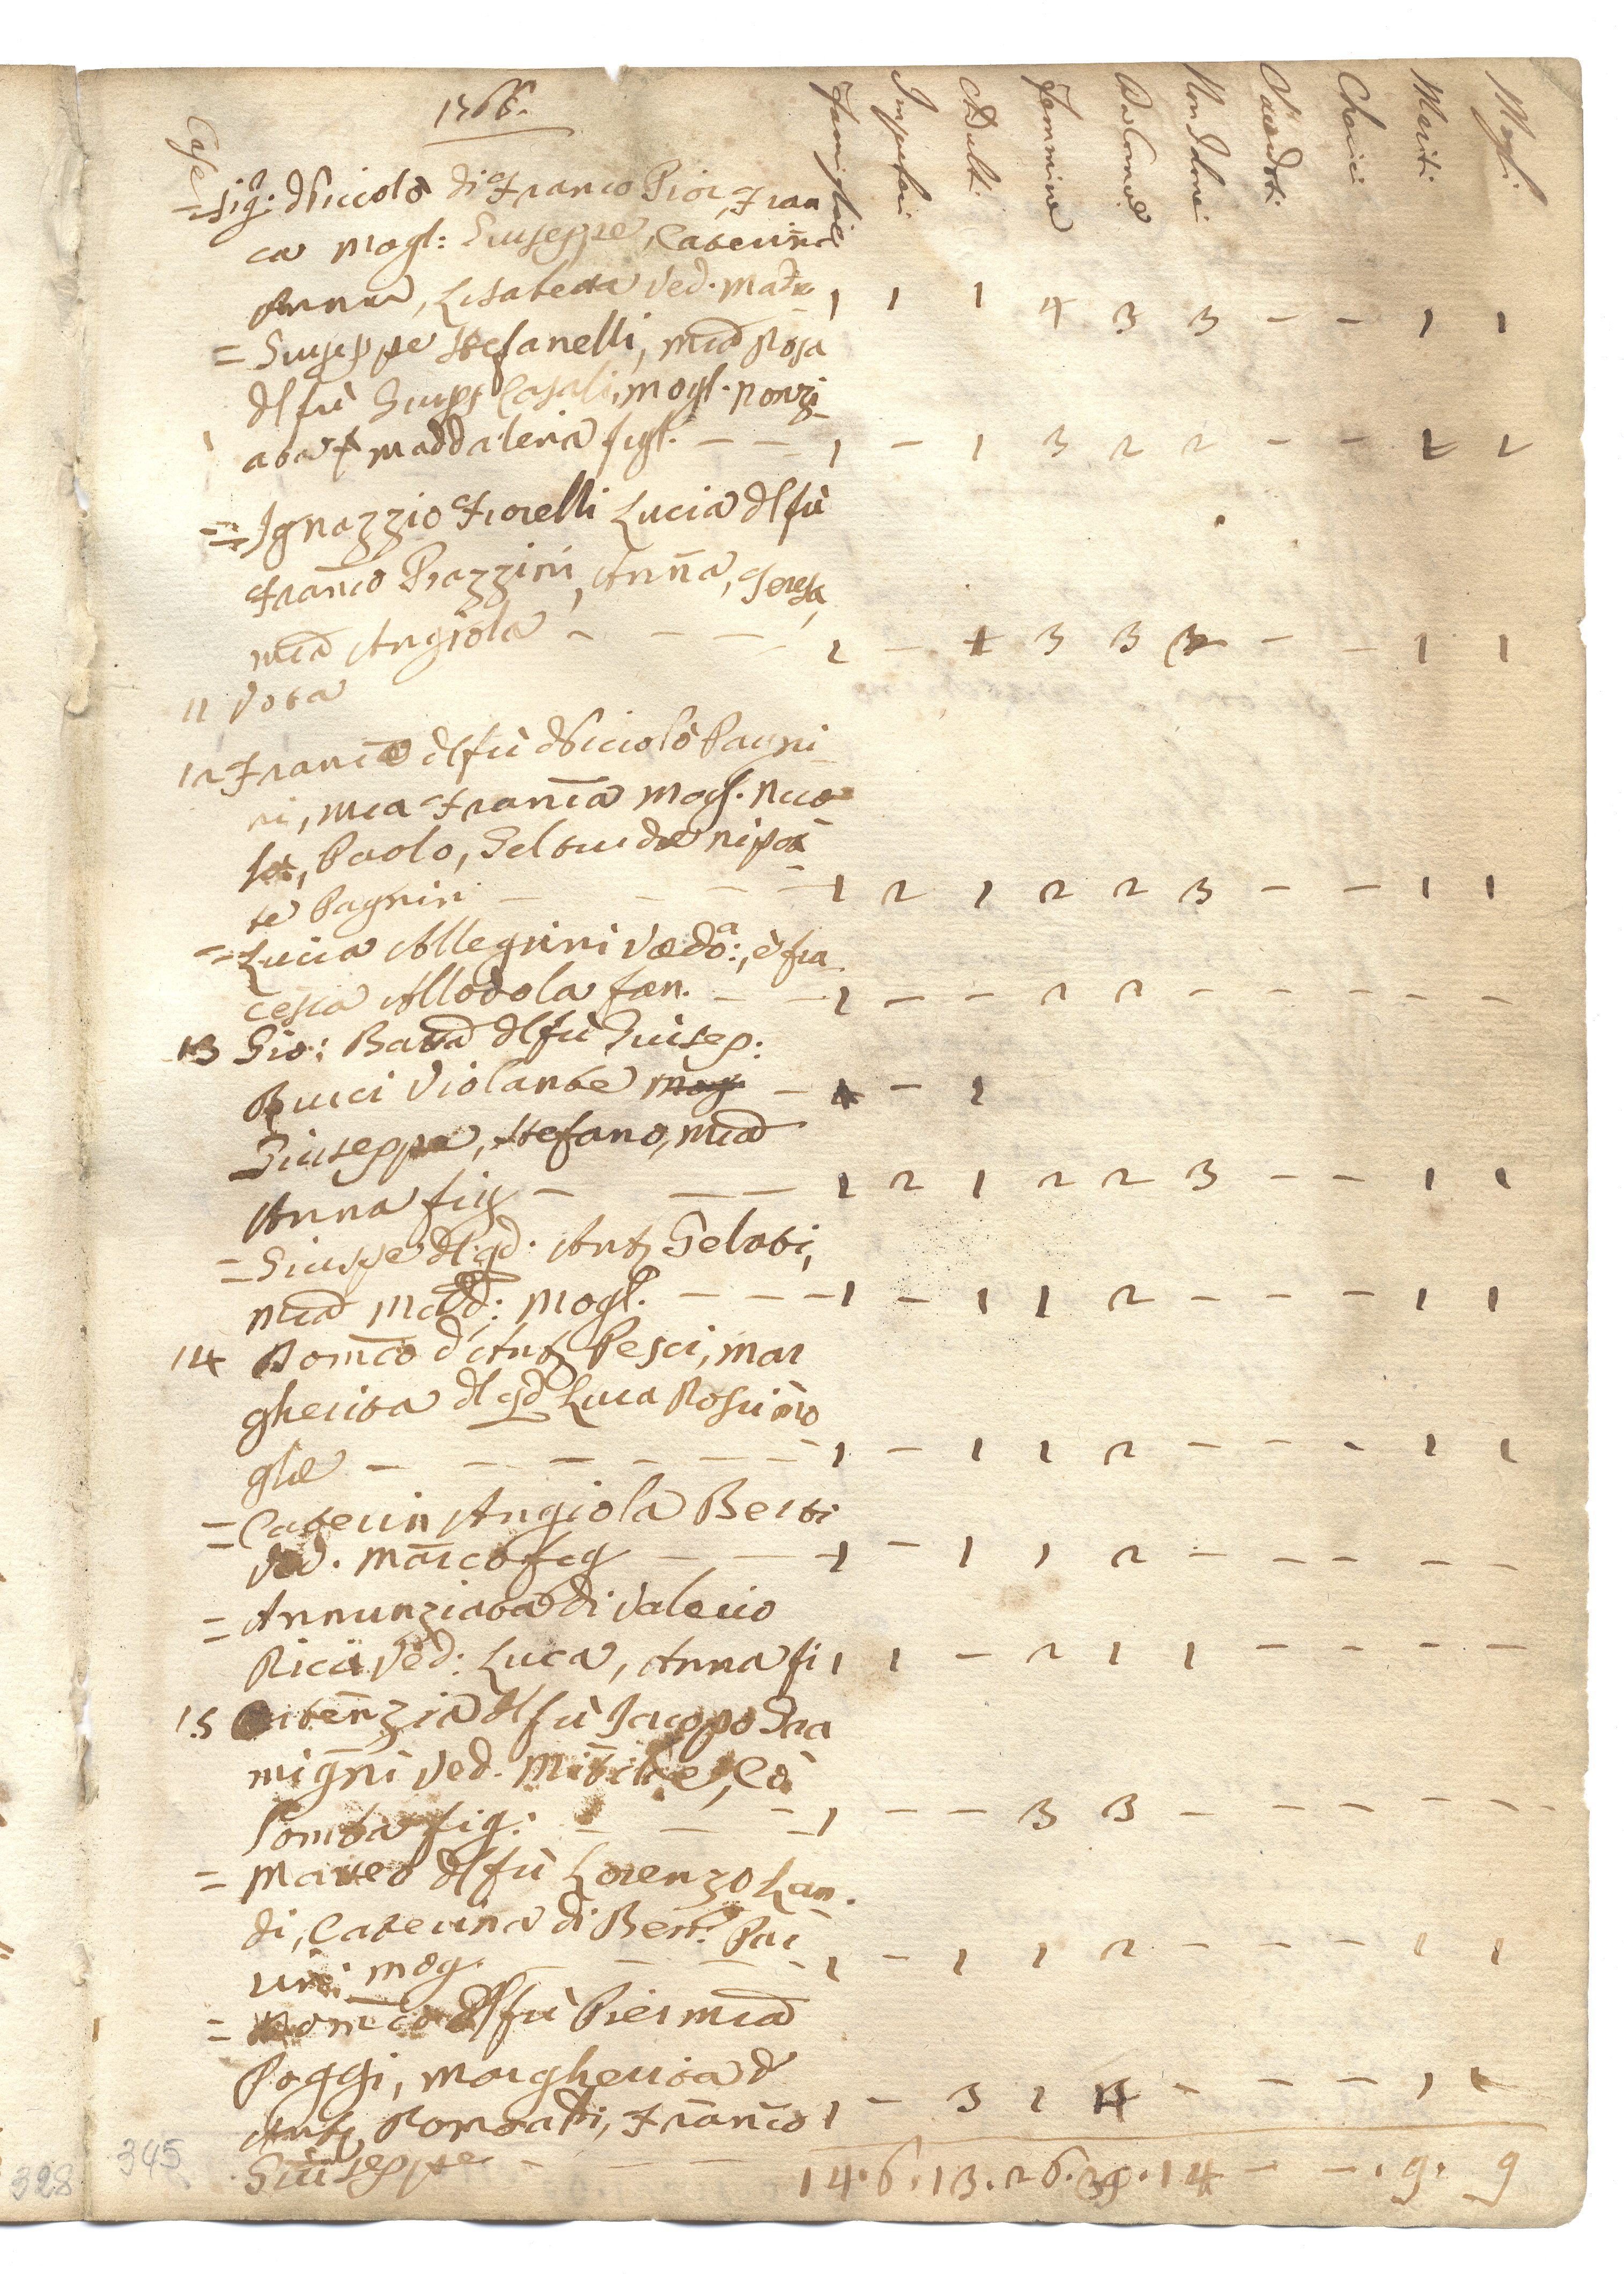 1766.
Case Famiglie Impuberi Adulti Femmine Da Comuē Non Idonei Sacerdoti Cherici Mariti Mogli
= Sig.r Niccolò di Franco Pior, Fran
ca Mogl: Giuseppe, Caterina
Anna, Lisabetta Ved. Madre 1 1 1 4 3 3 - - 1 1
= Giuseppe Stefanelli, Mia Rosa
dl fù Giusep Casali, mogl. Nonzi
ata e Maddalena figl. - - 1 - 1 3 2 2 - - 1 1
= Ignazzio Fiorelli Lucia dl fù
Franco Piazzini, Anna, Teresa,
Mia Angiola - - - 1 - 1 3 3 3 - - 1 1
11 Vota
12 Franco dl fù Niciolò Pagni
ni, Mia Franca Mogl. Nico
la, Paolo, Geltrude nipo
te Pagnini - - - 1 2 1 2 2 3 - - 1 1
= Lucia Allegrini Vedoa:, è fra
cesca Allodola fan. - - 1 - - 2 2 - - - - -
13 Gio: Batta dl fù Guisep:
Bucci Violante - - 1
Giuseppe, Stefano, Mia
Anna fig - - - 1 2 1 2 2 3 - - 1 1
= Giuspe dl qd. Anto Gelati,
Mia Madd: Mogl. - - - 1 - 1 1 2 - - - 1 1
14 Domco d'Anto Pesci, Mar
gherita dl qd Luca Rosi mo
glie - - - - - - 1 - 1 1 2 - - - 1 1
= Caterin Angiola Berti
Ved. Marco fig - - - 1 - 1 1 2 - - - - -
= Annunziata di Valerio
Ricci Ved: Luca, Anna fi 1 1 - 2 1 1 - - - -
15 Ortenzia dl fù Jacopo Dra
migni Ved. Co
lomba fig: - - - 1 - - 3 3 - - - - -
= Matteo dl fù Lorenzo Lan
di, Caterina di Bert.
mog. - - - 1 - 1 1 2 - - - 1 1
= Domco dl fù Pier Mia
Poggi, Margherita d
Anto Franco 1 - 3 1 4 - - - 1 1
Giuseppe - - - 14. 6. 13. 26. 29. 14 - - . 9. 9
345
328